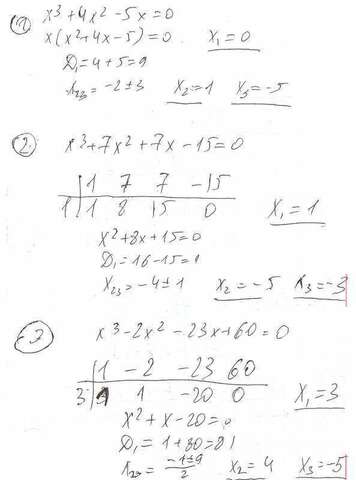 1) x³+4x²-5x=0
x(x²+4x-5)=0 x₁=0
D₁=4+5=9
x₂₃=-2±3 x₂=1 x₃=-5
2. x³+7x²+7x-15=0
1 7 7 -15
1 1 8 15 0 x₁=1
x²+8x+15=0
D₁=16-15=1
x₂₃=-4±1 x₂=-5 x₃=-3
3 x³-2x²-23x+60=0
1 -2 -23 60
3 1 1 -20 0 x₁=3
x²+x-20=0
D₁=1+80=81
x₂₃=(-1±9)/2 x₂=4 x₃=-5